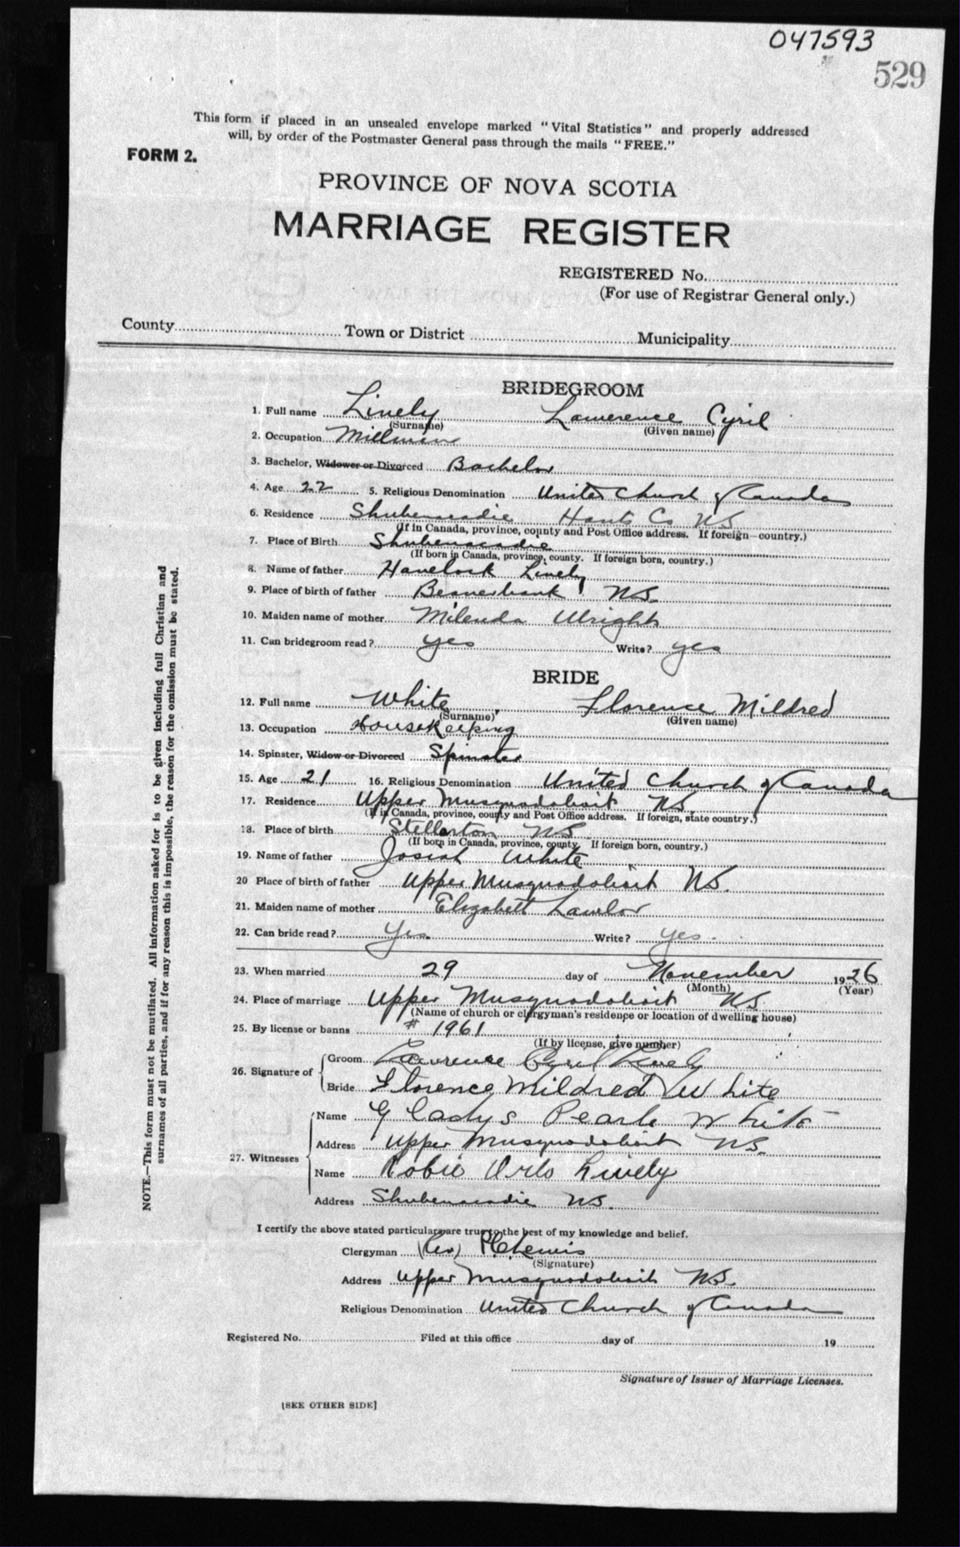 047593
529
This form if placed in an unsealed envelope marked "Vital Statistics" and properly addressed
will, by order of the Postmaster General pass through the mails "FREE."
FORM 2.
PROVINCE OF NOVA SCOTIA
MARRIAGE REGISTER
REGISTERED No.
(For use of Registrar General only.)
County Town or District Municipality
BRIDEGROOM
1. Full name Lively Lawerence Cyril
(Surname) (Given name)
2. Occupation Millman
3. Bachelor, Widower or Divorced Bachelor
4. Age 22 5. Religious Denomination United Church of Canada
6. Residence Shubenacadie Hants Co NS
(If in Canada, province, county and Post Office address. If foreign—country.)
7. Place of Birth Shubenacadie
(If born in Canada, province, county. If foreign born, country.)
8. Name of father Havelock Lively
9. Place of birth of father Beaverbank NS.
10. Maiden name of mother Milenda Wright
11. Can bridegroom read? yes Write? yes
BRIDE
12. Full name White Florence Mildred
(Surname) (Given name)
13. Occupation Housekeeping
14. Spinster, Widow or Divorced Spinster
15. Age 21 16. Religious Denomination United Church of Canada
17. Residence Upper Musquodoboit NS
(If in Canada, province, county and Post Office address. If foreign, state country.)
18. Place of birth Stellarton NS
(If born in Canada, province, county. If foreign born, country.)
19. Name of father Josiah White
20 Place of birth of father Upper Musquodoboit NS.
21. Maiden name of mother Elizabeth Lawlor
22. Can bride read? Yes Write? yes.
23. When married 29 day of November 1926
(Month) (Year)
24. Place of marriage Upper Musquodoboit NS
(Name of church or clergyman's residence or location of dwelling house)
25. By license or banns # 1961
(If by license, give number)
26. Signature of Groom Lawrence Cyril Lively
Bride Florence Mildred White
27. Witnesses Name Gladys Pearle White
Address Upper Musquodoboit NS.
Name Robie Orlo Lively
Address Shubenacadie NS.
I certify the above stated particulars are true to the best of my knowledge and belief.
Clergyman (Rev)
(Signature)
Address Upper Musquodoboit NS.
Religious Denomination United Church of Canada
Registered No. Filed at this office day of 19
Signature of Issuer of Marriage Licenses.
[SEE OTHER SIDE]
NOTE.—This form must not be mutilated. All information asked for is to be given including full Christian and
surnames of all parties, and if for any reason this is impossible, the reason for the omission must be stated.